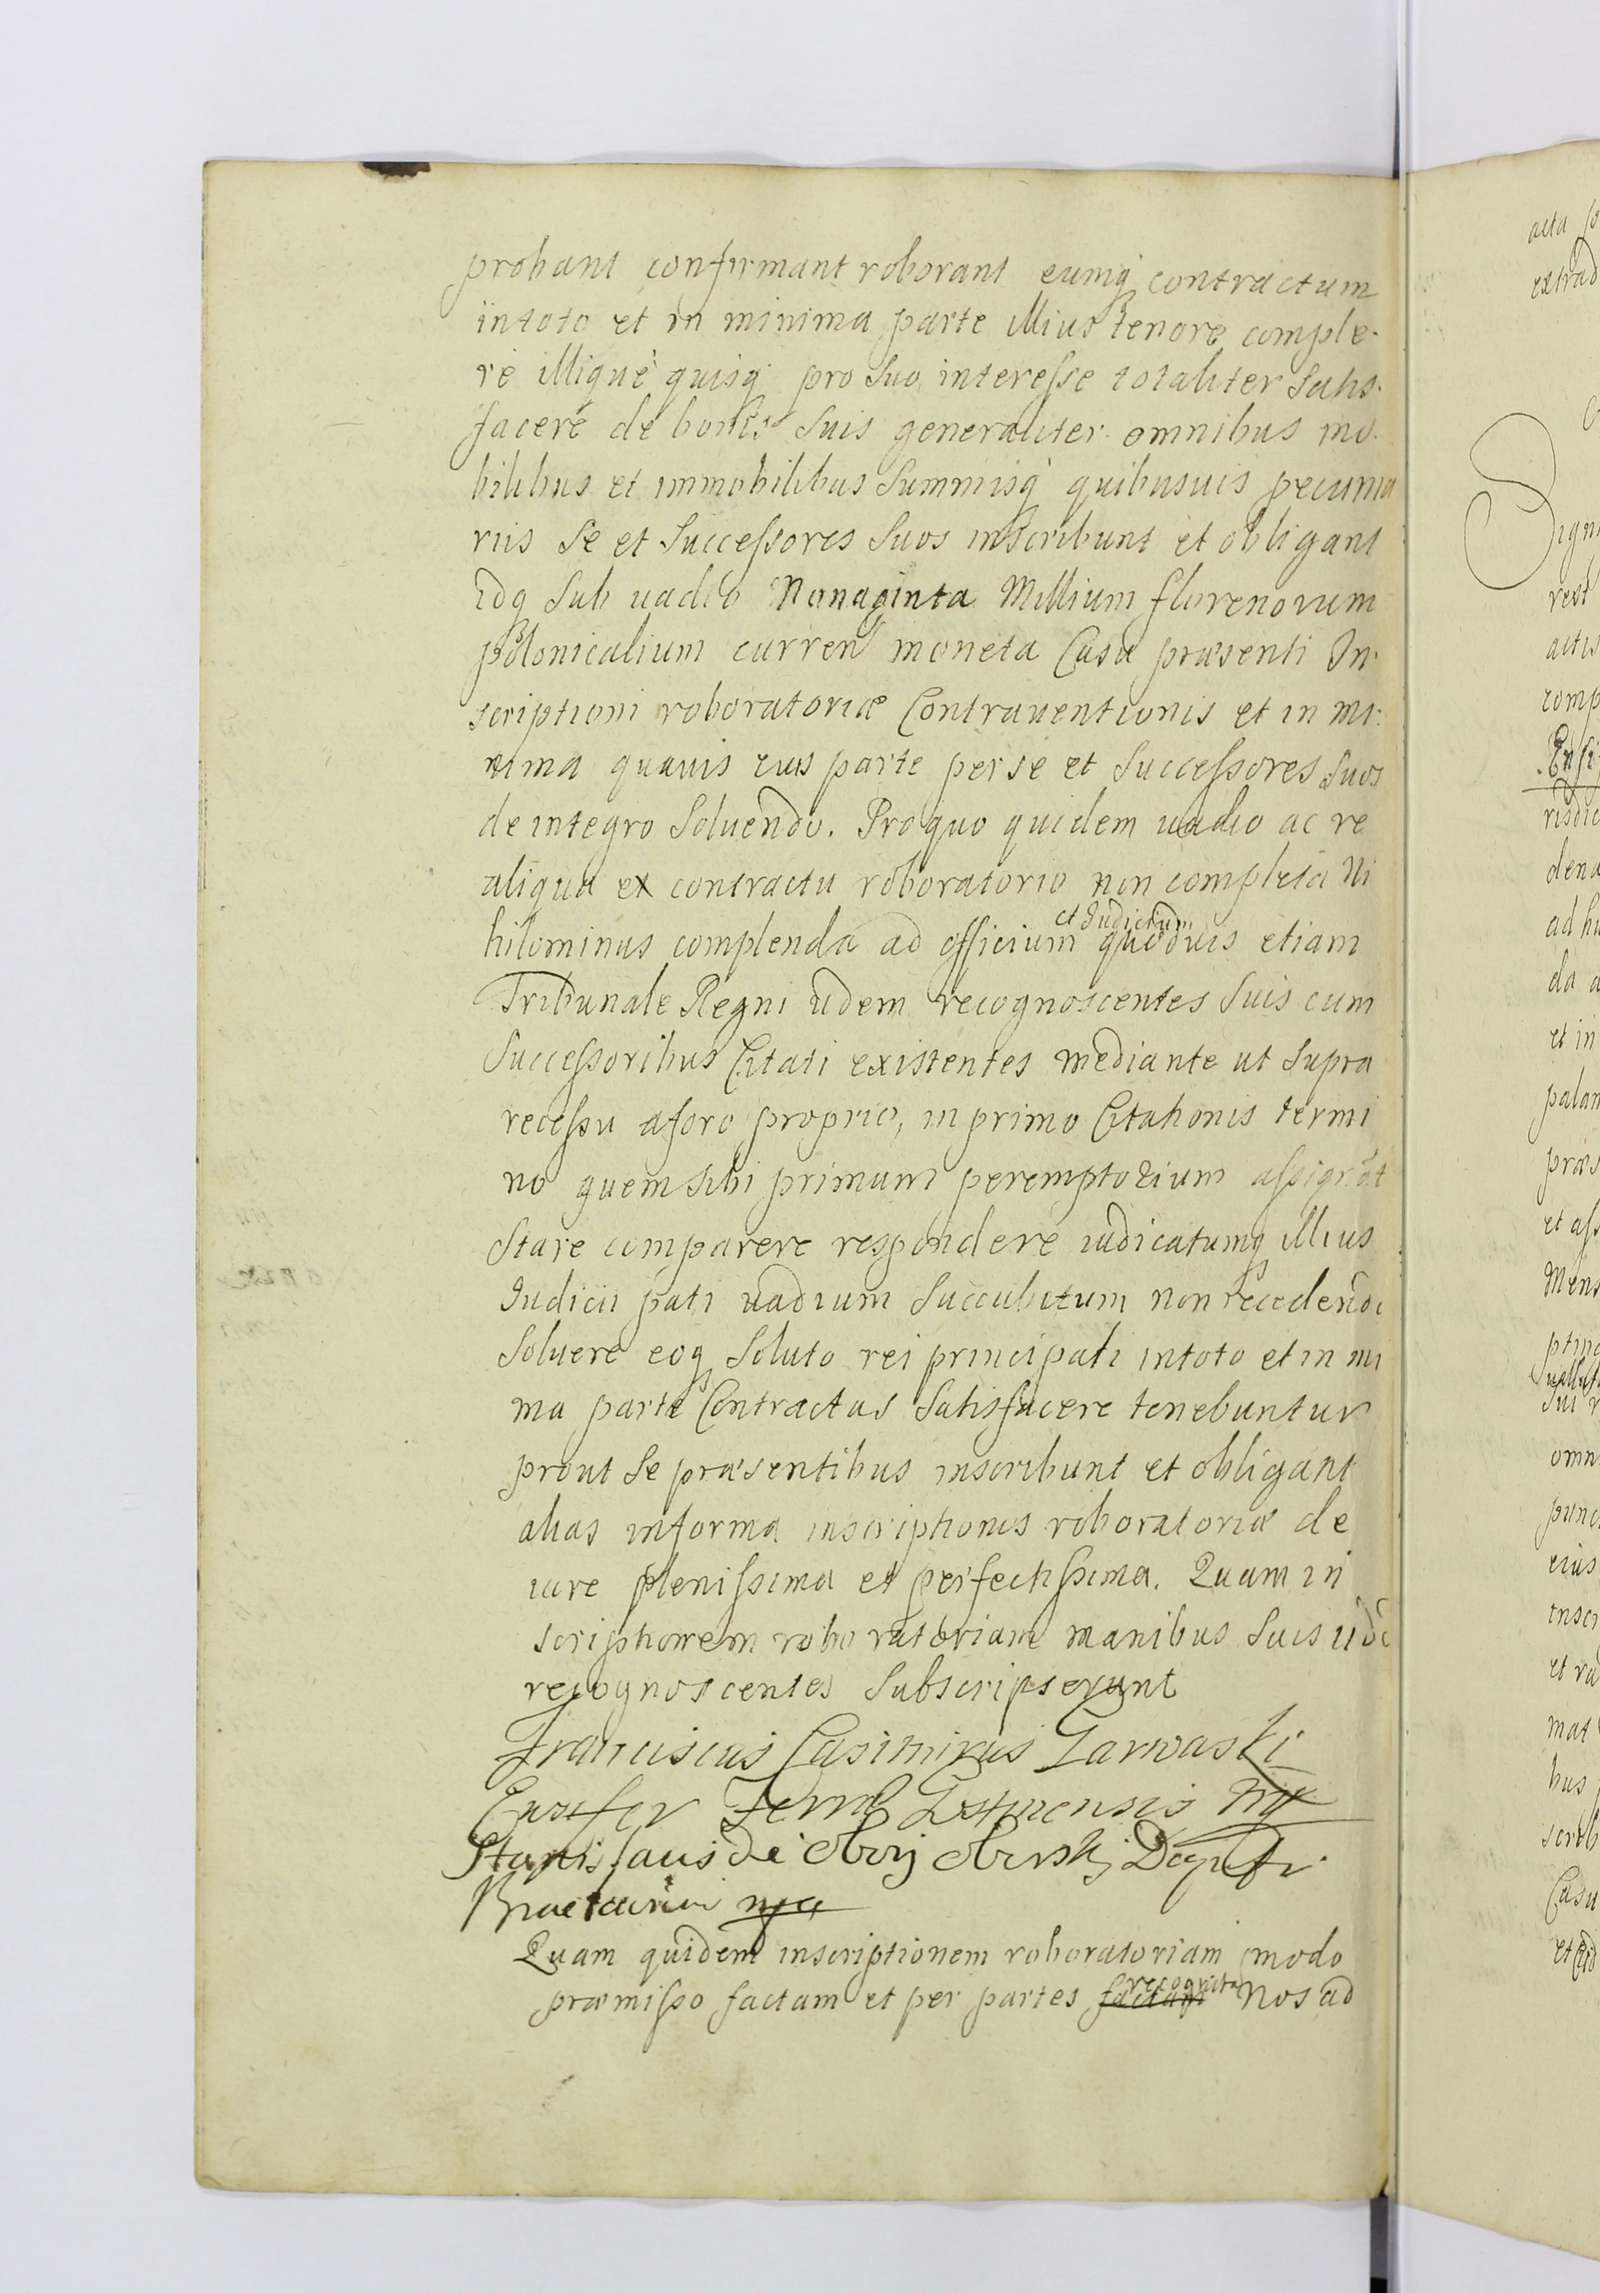 probant confirmant roborant eumq contractum
in toto et in minima parte illius tenore comple-
re illique quisq pro suo interesse totaliter satis-
facere de bonis suis generaliter omnibus mo-
bilibus et immobilibus summisq quibusuis pecunia
riis se et successores suos inscribunt et obligant
idq sub uadio Nonaginta Millium florenorum
polonicalium curren moneta Casu præsenti In-
scriptioni roboratoriæ Contrauentionis et in mi-
nima quauis eius parte per se et successores suos
de integro soluendo. Pro quo quidem uadio ac re
aliqua ex contractu roboratorio non completa Ni
hilominus complenda ad officium et Iudicium quoduis etiam
Tribunale Regni iidem recognoscentes suis cum
successoribus Citati existentes mediante ut supra
recessu a foro proprio, in primo Citationis termi
no quem sibi primum peremptorium assignāt
stare comparere respondere iudicatumq illius
Iudicii pati uadium succubitum non recedendo
soluere eoq soluto rei principali in toto et in mi
ma parte Contractus satisfacere tenebuntur
prout se præsentibus inscribunt et obligant
alias in forma inscriptionis roboratoriæ de
iure plenissima et perfectissima. Quam in
scriptionem roboratoriam manibus suis iidē
recognoscentes subscripserunt
Franciscus Casimirus
Ensifer Terræ mp
Stanislaus de Obory Oborski

Quam quidem inscriptionem roboratoriam modo
præmisso factam et per partes factam recognita Nos ad
acta
extrad
rest
actis
comp
Ensi
risdic
dena
ad hu
da a
et in
palam
præs
et ass
Mens
sui
omn
punc
eius
inscr
et ra
mat
bus
scrib
Casu